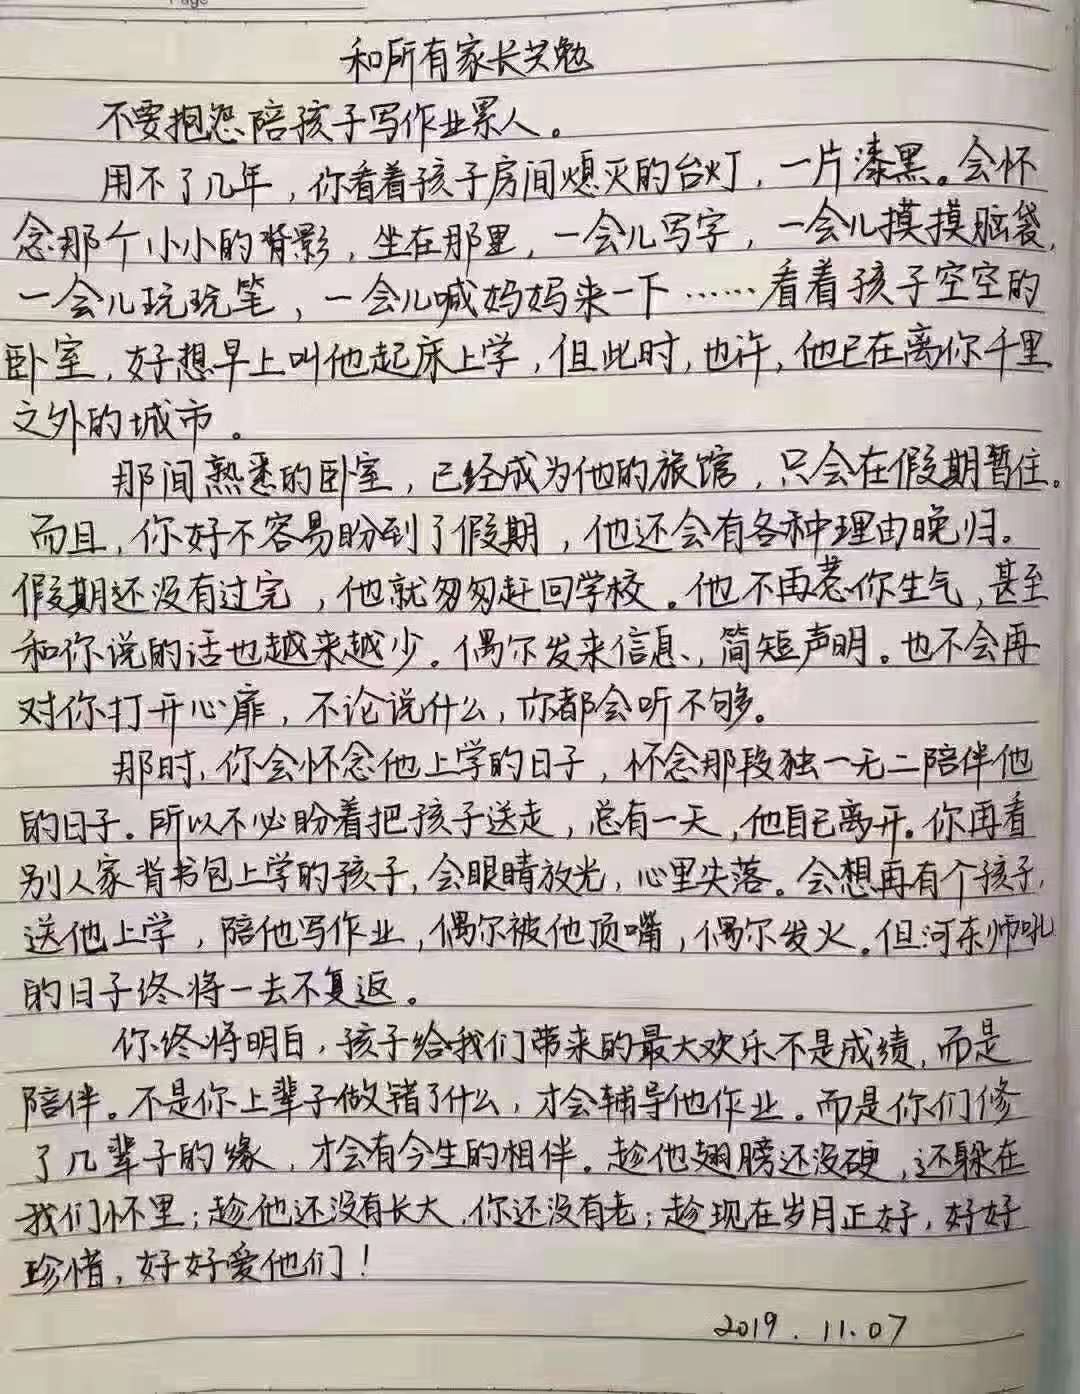 和所有家长共勉
不要抱怨陪孩子写作业累人。
用不了几年，你看着孩子房间熄灭的台灯，一片漆黑。会怀
念那个小小的背影，坐在那里，一会儿写字，一会儿摸摸脑袋，
一会儿玩玩笔，一会儿喊妈妈来一下……看着孩子空空的
卧室，好想早上叫他起床上学，但此时，也许，他已在离你千里
之外的城市。
那间熟悉的卧室，已经成为他的旅馆，只会在假期暂住。
而且，你好不容易盼到了假期，他还会有各种理由晚归。
假期还没有过完，他就匆匆赶回学校。他不再惹你生气，甚至
和你说的话也越来越少。偶尔发来信息，简短声明。也不会再
对你打开心扉，不论说什么，你都会听不够。
那时，你会怀念他上学的日子，怀念那段独一无二陪伴他
的日子。所以不必盼着把孩子送走，总有一天，他自己离开。你再看
别人家背书包上学的孩子，会眼睛放光，心里失落。会想再有个孩子，
送他上学，陪他写作业，偶尔被他顶嘴，偶尔发火。但河东师吼
的日子终将一去不复返。
你终将明白，孩子给我们带来的最大欢乐不是成绩，而是
陪伴。不是你上辈子做错了什么，才会辅导他作业。而是你们修
了几辈子的缘，才会有今生的相伴。趁他翅膀还没硬，还躲在
我们怀里；趁他还没有长大，你还没有老；趁现在岁月正好，好好
珍惜，好好爱他们！
2019.11.07